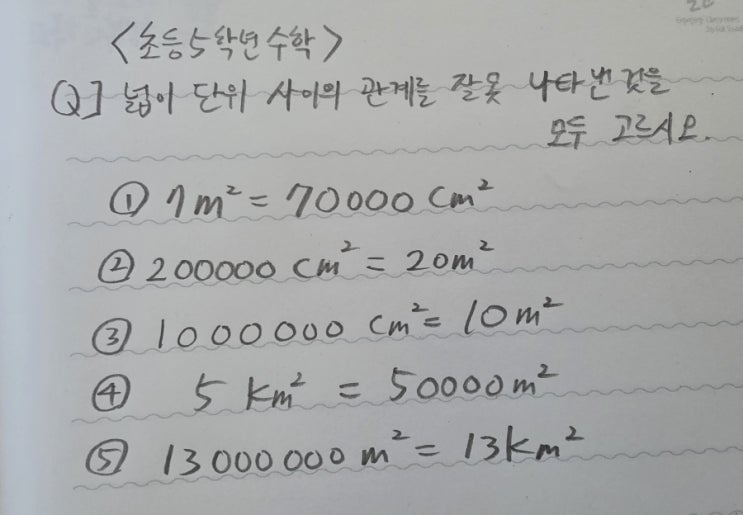 <초등5학년 수학>
Q] 넓이 단위 사이의 관계를 잘못 나타낸 것을
모두 고르시오.
① 7m² = 70000 cm²
② 200000 cm² = 20m²
③ 1000000 cm² = 10m²
④ 5 km² = 50000m²
⑤ 13000000 m² = 13km²